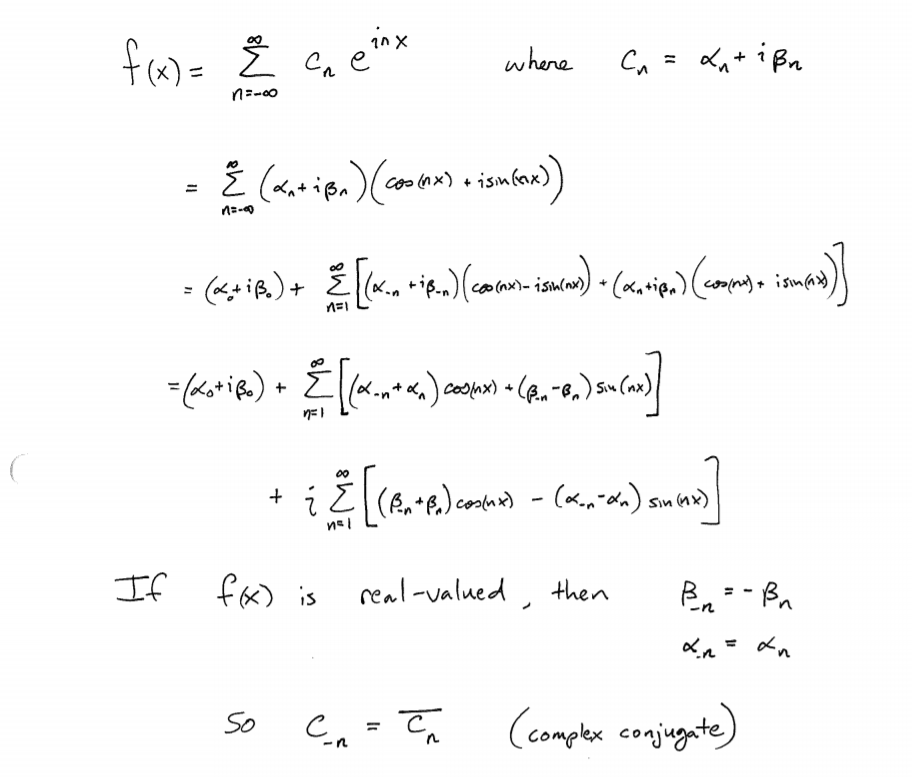 f(x) = ∑_{n=-∞}^{∞} c_n e^{inx} where C_n = α_n + iβ_n
= ∑_{n=-∞}^{∞} (α_n + iβ_n)(cos(nx) + isin(nx))
= (α_0 + iβ_0) + ∑_{n=1}^{∞} [(α_{-n} + iβ_{-n})(cos(nx) - isin(nx)) + (α_n + iβ_n)(cos(nx) + isin(nx))]
= (α_0 + iβ_0) + ∑_{n=1}^{∞} [(α_{-n} + α_n) cos(nx) + (β_{-n} - β_n) sin(nx)]
+ i ∑_{n=1}^{∞} [(β_{-n} + β_n) cos(nx) - (α_{-n} - α_n) sin(nx)]
If f(x) is real-valued, then β_{-n} = -β_n
α_{-n} = α_n
So C_{-n} = \overline{C_n} (complex conjugate)